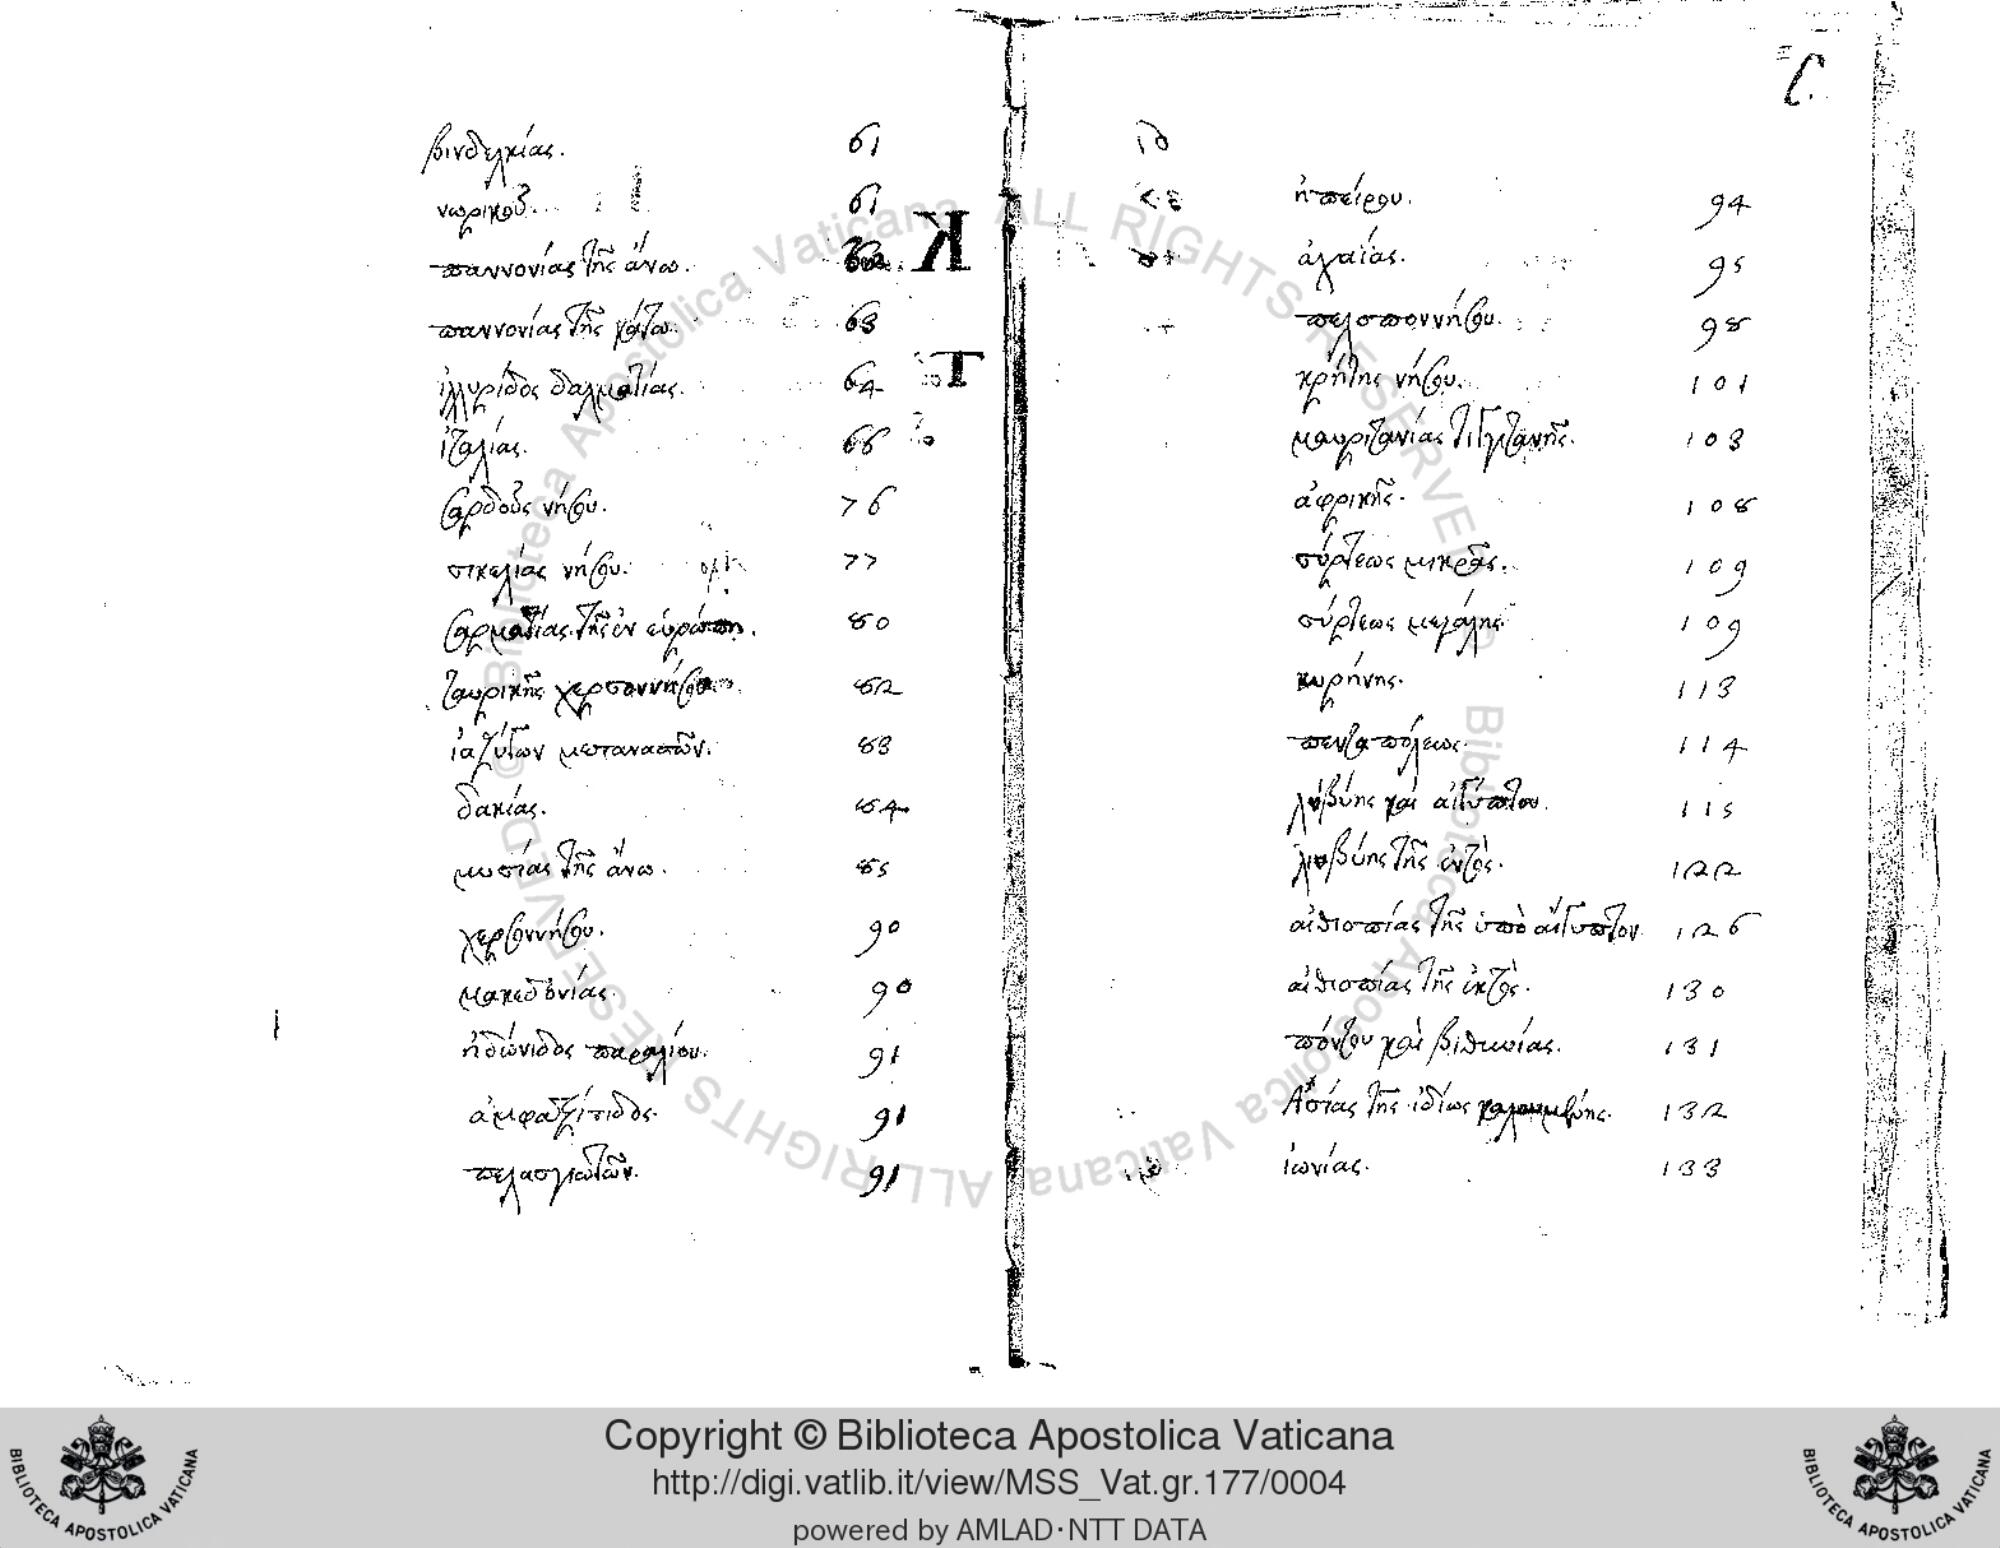 βινδελκίας. 61
νωρικοῦ. 61
παννονίας τῆς ἄνω.
παννονίας τῆς κάτω. 63
ἰλλυρίδος δαλματίας. 64
ἰταλίας. 66
σαρδοῦς νήσου. 76
σικελίας νήσου. 77
σαρματίας τῆς ἐν εὐρώπη. 80
ταυρικῆς χερσοννήσου. 82
ἰαζύγων μεταναστῶν. 83
δακίας. 84
μυσίας τῆς ἄνω. 85
χερσοννήσου. 90
μακεδονίας. 90
ἠδώνιδος παραλίου. 91
ἀμφαξίτιδος. 91
πελασγιωτῶν. 91
ἠπείρου. 94
ἀχαΐας. 95
πελοποννήσου. 98
κρήτης νήσου. 101
μαυριτανίας τιγγιτανῆς. 103
ἀφρικῆς. 108
σύρτεως μικρᾶς. 109
σύρτεως μεγάλης. 109
κυρήνης. 113
πενταπόλεως. 114
λυβύης καὶ αἰγύπτου. 115
λυβύης τῆς ἐντὸς. 122
αἰθιοπίας τῆς ὑπὸ αἴγυπτον. 126
αἰθιοπίας τῆς ἐκτὸς. 130
πόντου καὶ βιθυνίας. 131
Ἀσίας τῆς ἰδίως καλουμένης. 132
ἰωνίας. 133
Copyright © Biblioteca Apostolica Vaticana
http://digi.vatlib.it/view/MSS_Vat.gr.177/0004
powered by AMLAD·NTT DATA
BIBLIOTECA APOSTOLICA VATICANA
BIBLIOTECA APOSTOLICA VATICANA
© Biblioteca Apostolica Vaticana ALL RIGHTS RESERVED
© Biblioteca Apostolica Vaticana ALL RIGHTS RESERVED